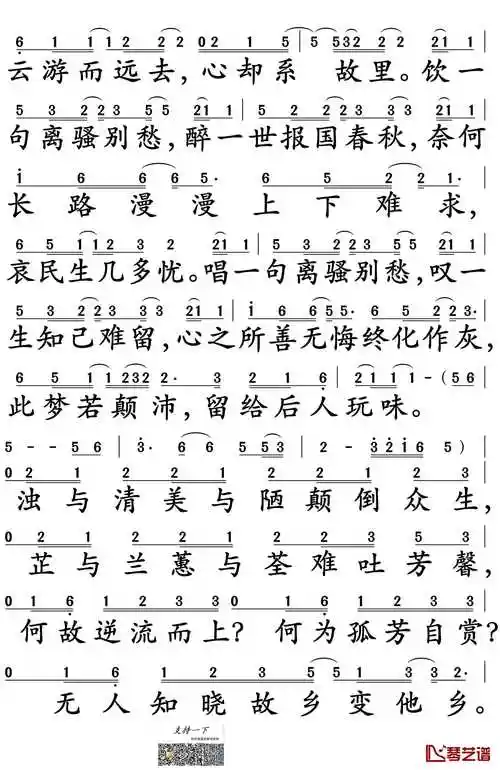 6 1 1 1 2 2 2 2 0 2 1 5 | 5 5 3 2 2 2 2 2 1 1 |
云游而远去,心却系 故里。饮一
5 3 2 2 3 5 5 2 1 1 | 5 3 2 2 3 2 3 3 2 1 1 |
句离骚别愁,醉一世报国春秋,奈何
i 6 6 6 6 5· 6 5 2 2 1· |
长路漫漫上下难求,
6 5 1 1 2 3 2 2 1 1 | 5 3 2 2 3 5 5 2 1 1 |
哀民生几多忧。唱一句离骚别愁,叹一
5 3 2 2 3 3 3 2 1 1 | i 6 6 5 5· 6 5 2 2 3· |
生知己难留,心之所善无悔终化作灰,
6 5 1 1 2 3 2 2· 3 2 1 6 | 2 1 1 1 - ( 5 6 |
此梦若颠沛,留给后人玩味。
5 - - 5 6 | 3· 6 6 5 5 3 | 2 - 3 2 1 6 5 ) |
0 2 1 2 2 1 2 2 1 5 3 |
浊与清美与陋颠倒众生,
0 2 1 2 2 1 2 3 3 5 3 |
芷与兰蕙与荃难吐芳馨,
0 1 6 1 2 3 3 0 1 6 1 2 3 3 |
何故逆流而上?何为孤芳自赏?
0 1 6 1 2 3 5 3 3 2· |
无人知晓故乡变他乡。
支持一下
琴艺谱